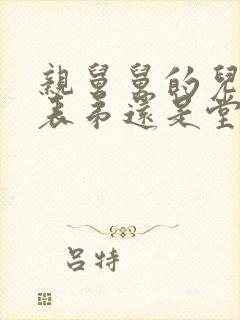 親舅舅的兒
表弟還是堂
呂特